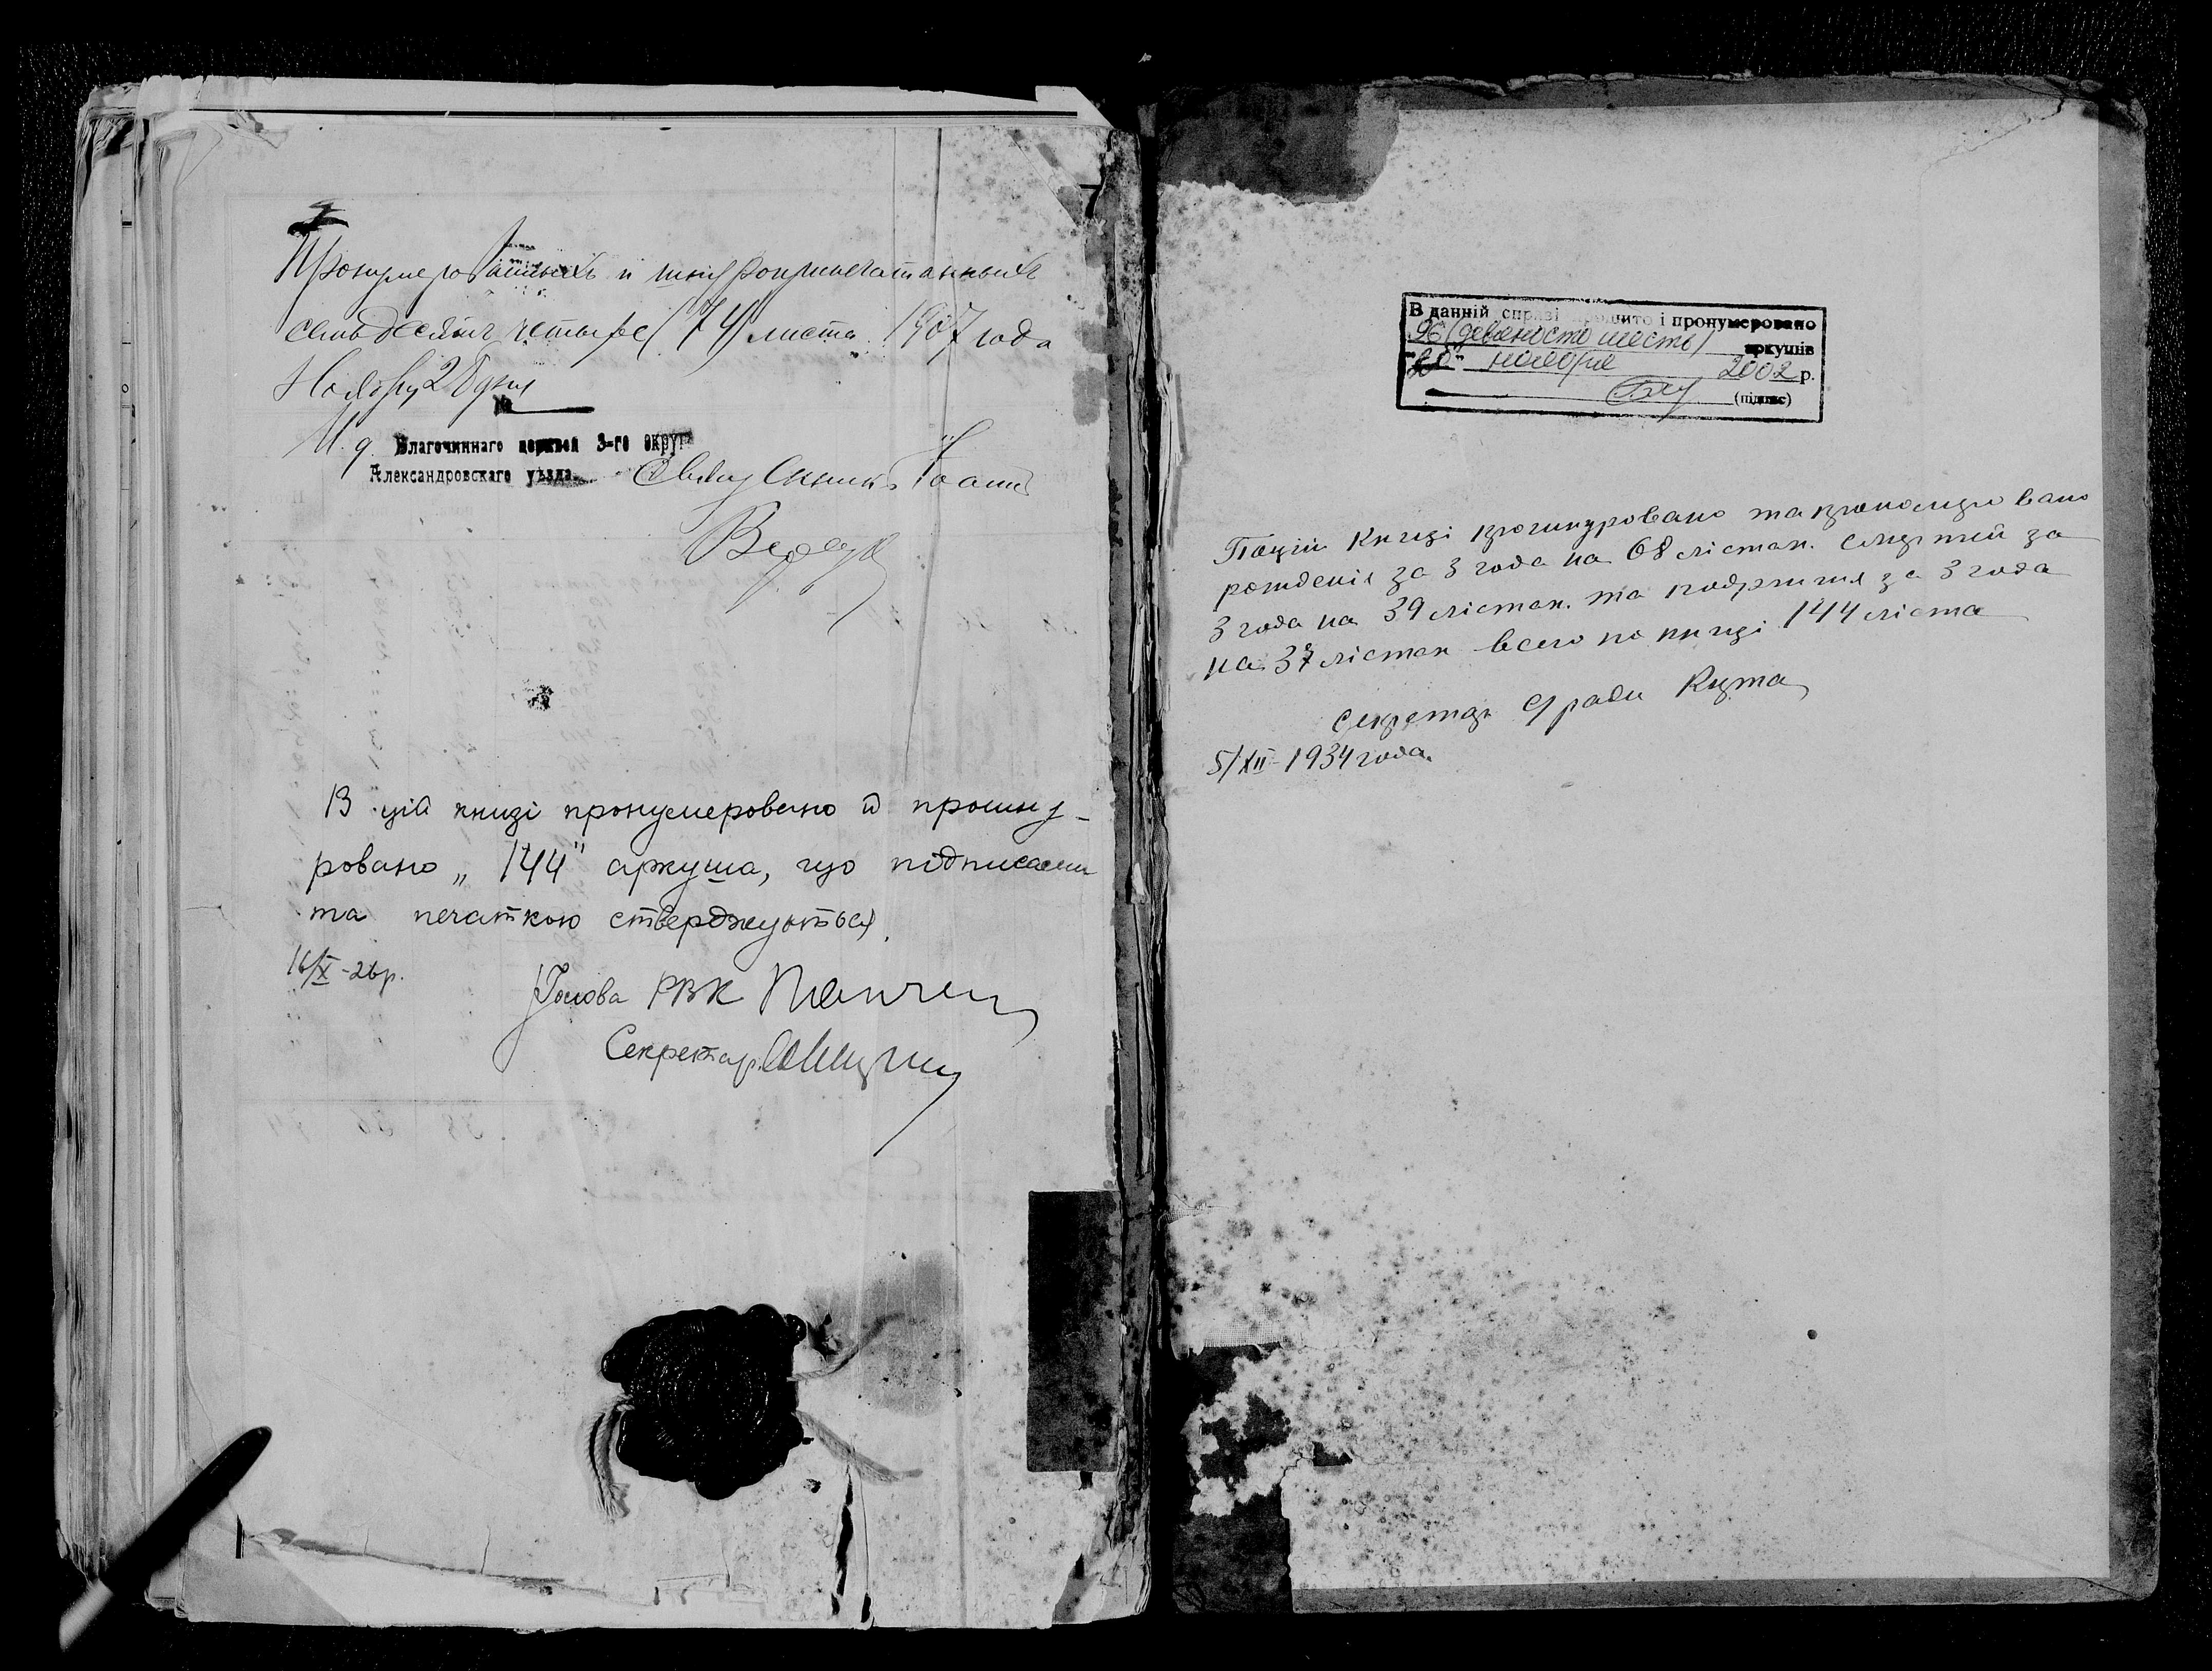 Пронумерованныхъ и
семьдесятъ четыре (74) листа 1907 года
Ноября 28 дня
№
И. д. Благочиннаго церквей 3-го округ
Александровскаго уѣзда. Священникъ Іоаннъ
В цій книзі пронумеровано й прошну-
ровано „144" аркуша, що підписами
та печаткою стверджується.
16/X-26р.
Голова РВК
Секретар
В данній справі прошито і пронумеровано
96 (девяносто шесть) аркушів
ноября 2002 р.
(підпис)
По цій книзі прошнуровано та прономеровано
рождения за 3 года на 68 лістах. смертей за
3 года на 39 лістах. та за 3 года
на 37 лістах всего по книзі 144 ліста
секретар с/ради
5/XII-1934 года.